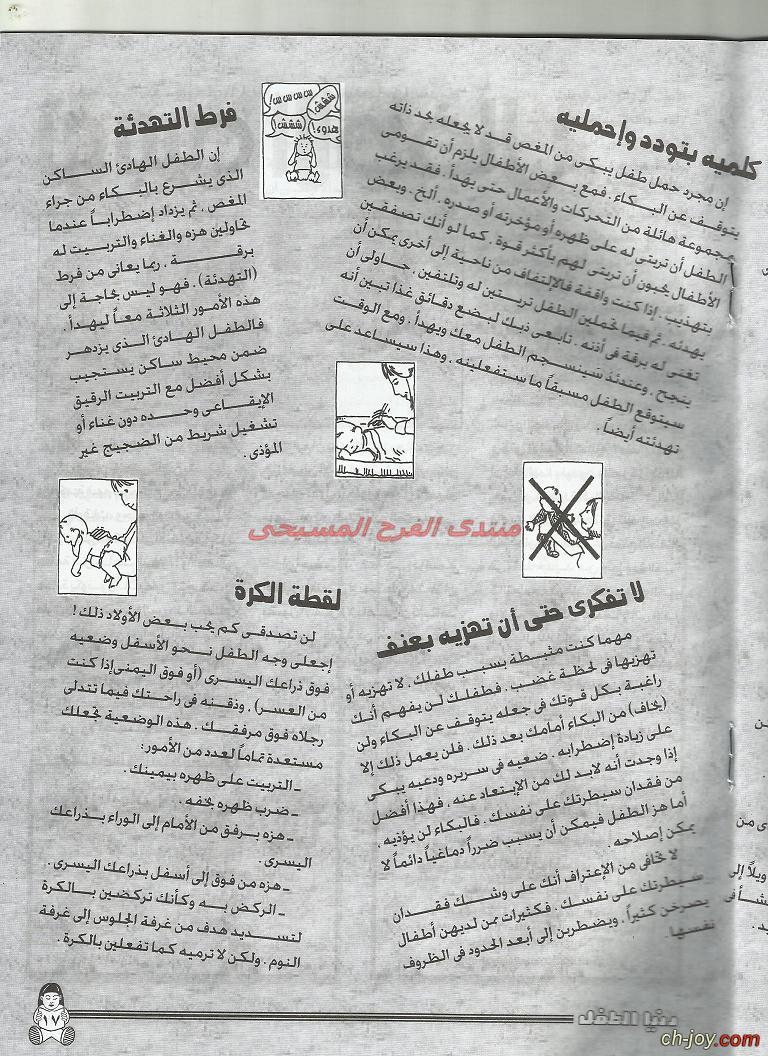 كلميه بتودد وإحمليه
إن مجرد حمل طفل يبكى من المغص قد لا يجعله بحد ذاته
يتوقف عن البكاء . فمع بعض الأطفال يلزم أن تقومى
بمجموعة هائلة من التحركات والأعمال حتى يهدأ . فقد يرغب
الطفل أن تربتى له على ظهره أو مؤخرته أو صدره . ألخ . وبعض
الأطفال يحبون أن تربتى لهم بأكثر قوة . كما لو أنك تصفقين
بتهذيب . إذا كنت واقفة فالإلتفاف من ناحية إلى أخرى يمكن أن
يهدئه . ثم فيما تحملين الطفل تربتين له وتلتفين . حاولى أن
تغنى له برقة فى أذنه . تابعى ذلك لبضع دقائق غذا تبين أنه
ينجح . وعندئذ سينسجم الطفل معك ويهدأ . ومع الوقت
سيتوقع الطفل مسبقاً ما ستفعلينه . وهذا سيساعد على
تهدئته أيضاً .
س س س س !
ششش
ششش !
هدوء !
فرط التهدئة
إن الطفل الهادئ الساكن
الذى يشرع بالبكاء من جراء
المغص . ثم يزداد إضطراباً عندما
تحاولين هزه والغناء والتربيت له
برقة . ربما يعانى من فرط
(التهدئة) . فهو ليس بحاجة إلى
هذه الأمور الثلاثة معاً ليهدأ .
فالطفل الهادئ الذى يزدهر
ضمن محيط ساكن يستجيب
بشكل أفضل مع التربيت الرقيق
الإيقاعى وحده دون غناء أو
تشغيل شريط من الضجيج غير
المؤذى .
منتدى الفرح المسيحى
لا تفكرى حتى أن تهزيه بعنف
مهما كنت مثبطة بسبب طفلك . لا تهزيه أو
تهزيها فى لحظة غضب . فطفلك لن يفهم أنك
راغبة بكل قوتك فى جعله يتوقف عن البكاء ولن
(يخاف) من البكاء أمامك بعد ذلك . فلن يعمل ذلك إلا
على زيادة إضطرابه . ضعيه فى سريره ودعيه يبكى
إذا وجدت أنه لابد لك من الإبتعاد عنه . فهذا أفضل
من فقدان سيطرتك على نفسك . فالبكاء لن يؤذيه .
أما هز الطفل فيمكن أن يسبب ضرراً دماغياً دائماً لا
يمكن إصلاحه .
لا تخافى من الإعتراف أنك على وشك فقدان
سيطرتك على نفسك . فكثيرات ممن لديهن أطفال
يصرخن كثيراً . ويضطربن إلى أبعد الحدود فى الظروف
نفسها .
لقطة الكرة
لن تصدقى كم يحب بعض الأولاد ذلك !
إجعلى وجه الطفل نحو الأسفل وضعيه
فوق ذراعك اليسرى (أو فوق اليمنى إذا كنت
من العسر) . وذقنه فى راحتك فيما تتدلى
رجلاه فوق مرفقك . هذه الوضعية تجعلك
مستعدة تماماً لعدد من الأمور :
ـ التربيت على ظهره بيمينك .
ـ ضرب ظهره بخفه .
ـ هزه برفق من الأمام إلى الوراء بذراعك
اليسرى .
ـ هزه من فوق إلى أسفل بذراعك اليسرى .
ـ الركض به وكأنك تركضين بالكرة
لتسديد هدف من غرفة الجلوس إلى غرفة
النوم . ولكن لا ترميه كما تفعلين بالكرة .
دنيا الطفل
١٧
ch-joy.com